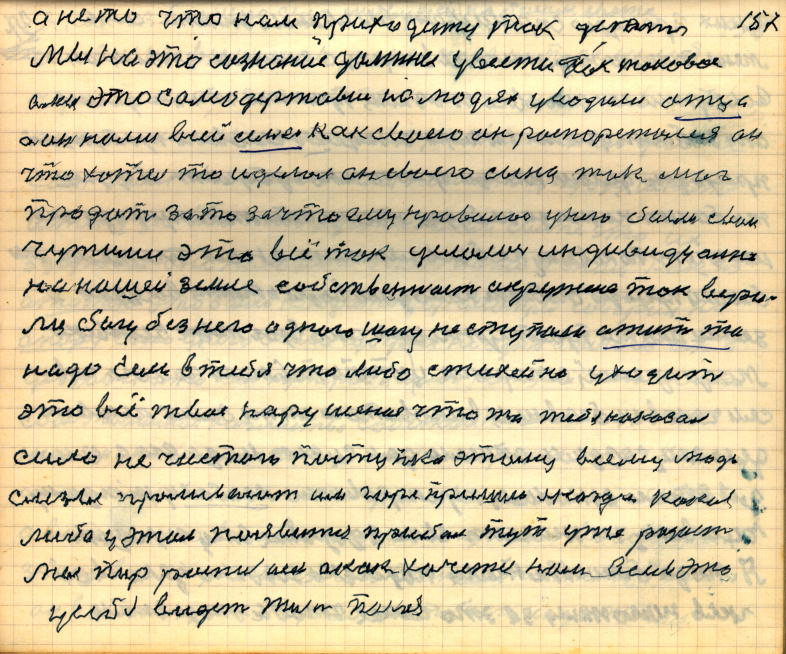 а не то что нам приходиту так делать 157
мы на это сознание должны увести
это самодержавие на людях уводили отца
а он нами всей семьей как своего он роспоретался он
что хотел то и делал он своего сына так мог
продат за то за что ему нравилос у него были свои
это всё так делалос индивидуално
на нашей земле собственност окружена так вери-
ли богу без него одного шагу не ступали
надо Если в тебя что либо стихейно уходит
это всё твое нарушение что то тебя наказал
сило не чистого поступка этому всему люди
слезы проливают им горе пришло а когда какая
либо у этом появитса прибыл тут уже радост
мы пир а как хочете нам всем это
видет